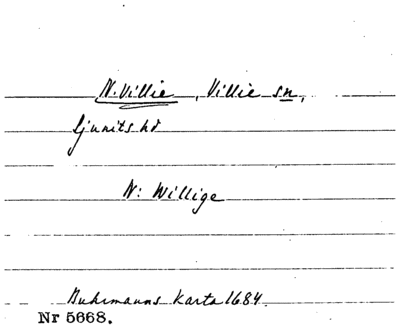 N. Villie, Villie sn,
Ljunits hd
N: Willige
Buhrmanns Karta 1684.
Nr 5668.